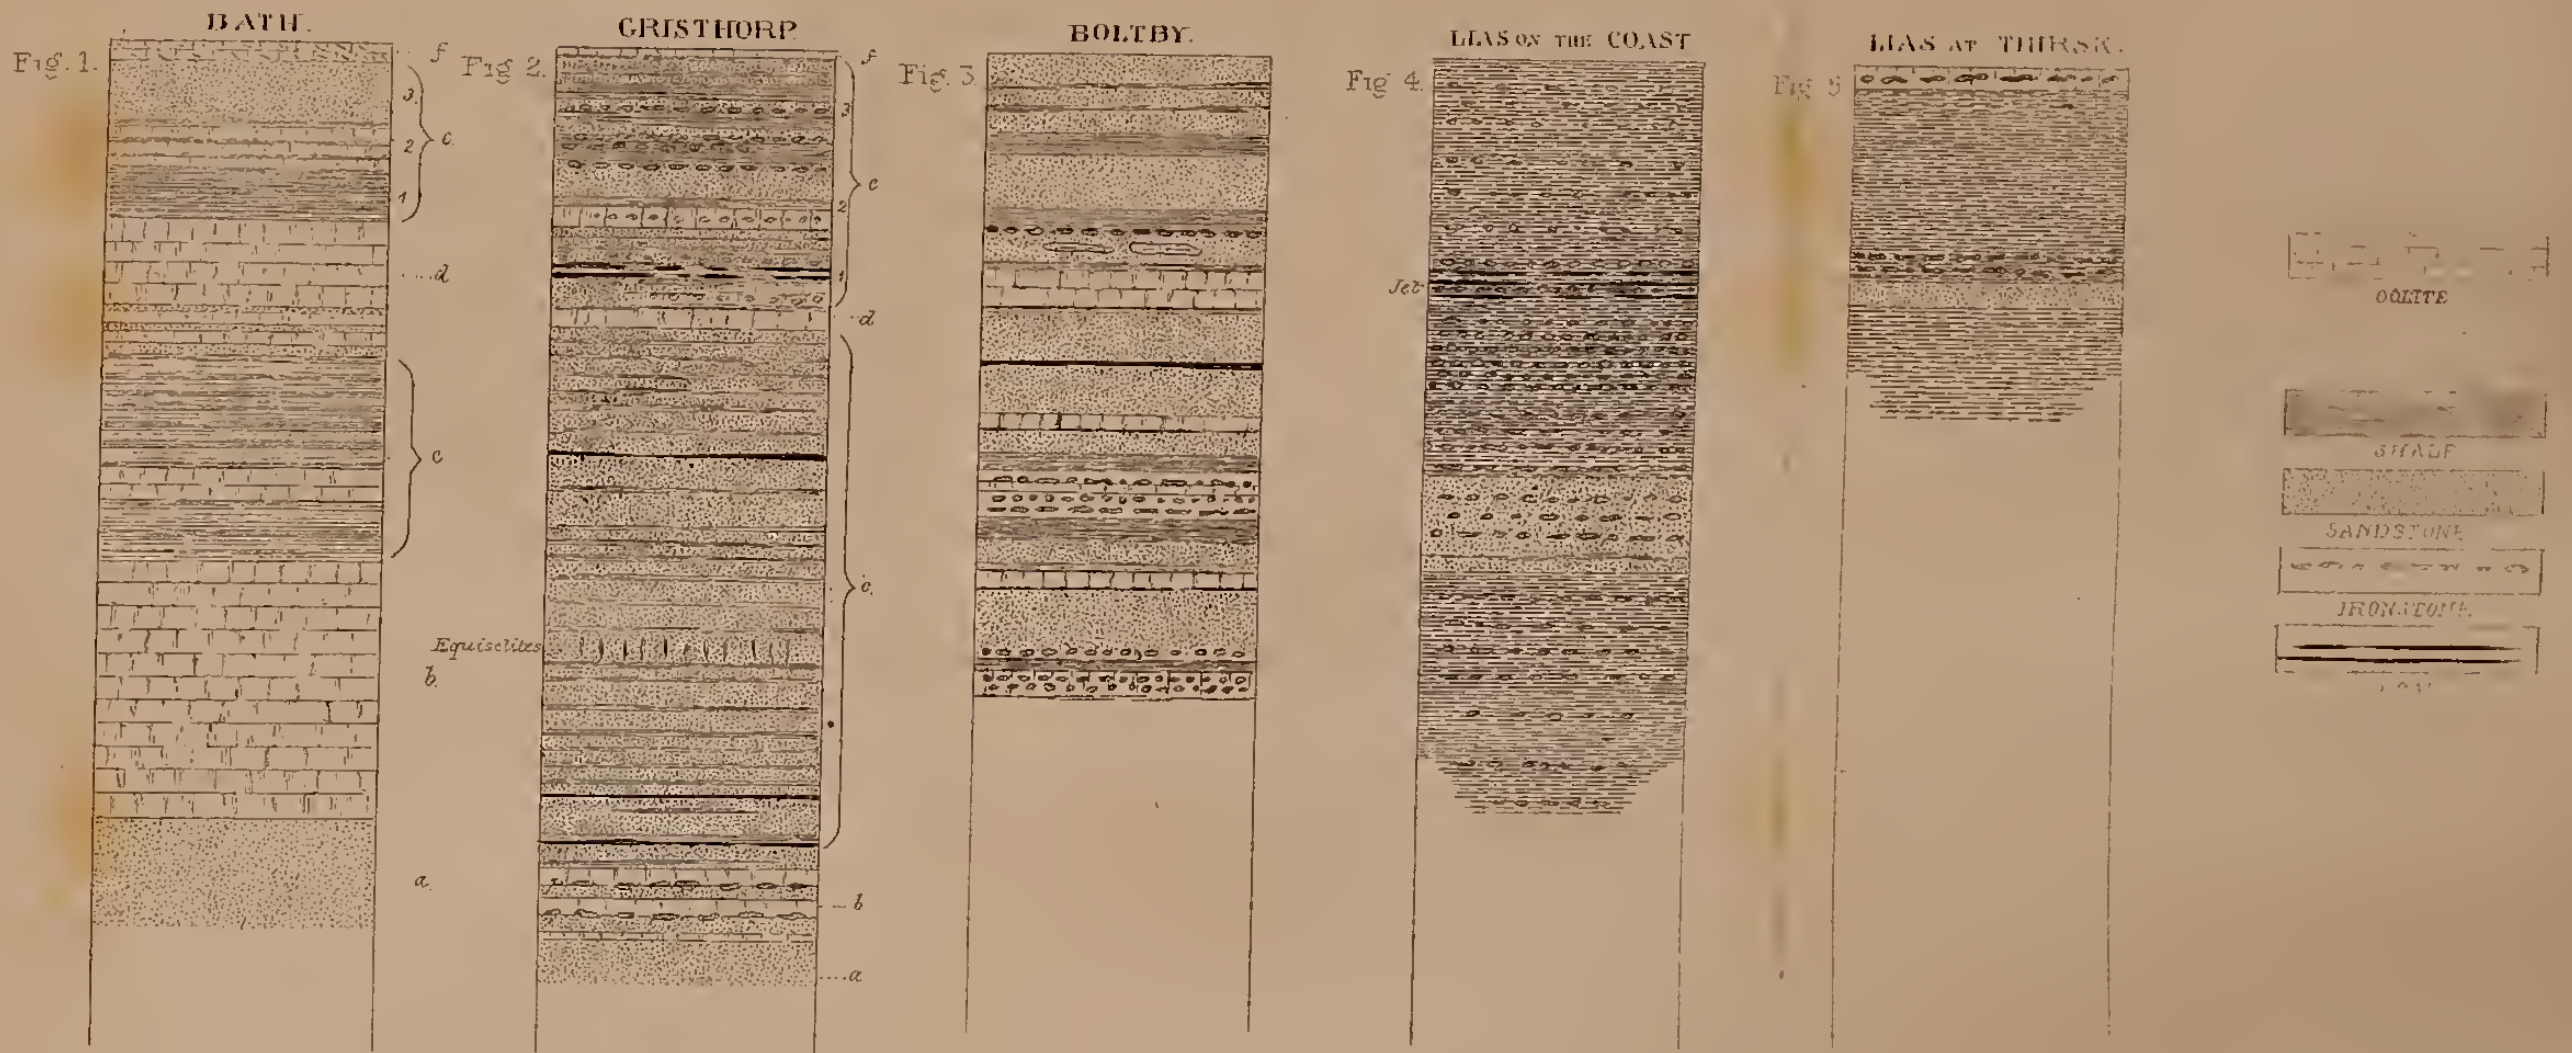 BATH.
Fig. 1.
f
3
2
1
c.
d
c
b.
a
GRISTHORP.
Fig 2.
f
3
2
1
c
d
c.
Equisetites
b
a
BOLTBY.
Fig. 3.
LIAS ON THE COAST
Fig 4.
Jet
LIAS AT THIRSK.
Fig 5
OOLITE
SHALE
SANDSTONE
IRONSTONE